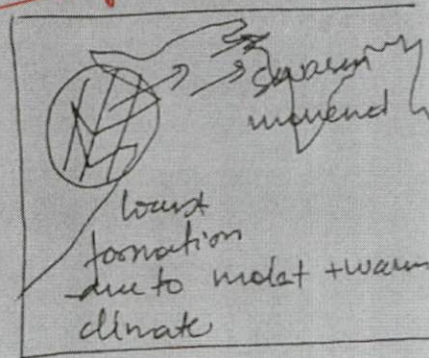 swarm
locust
formation
due to moist + warm
climate